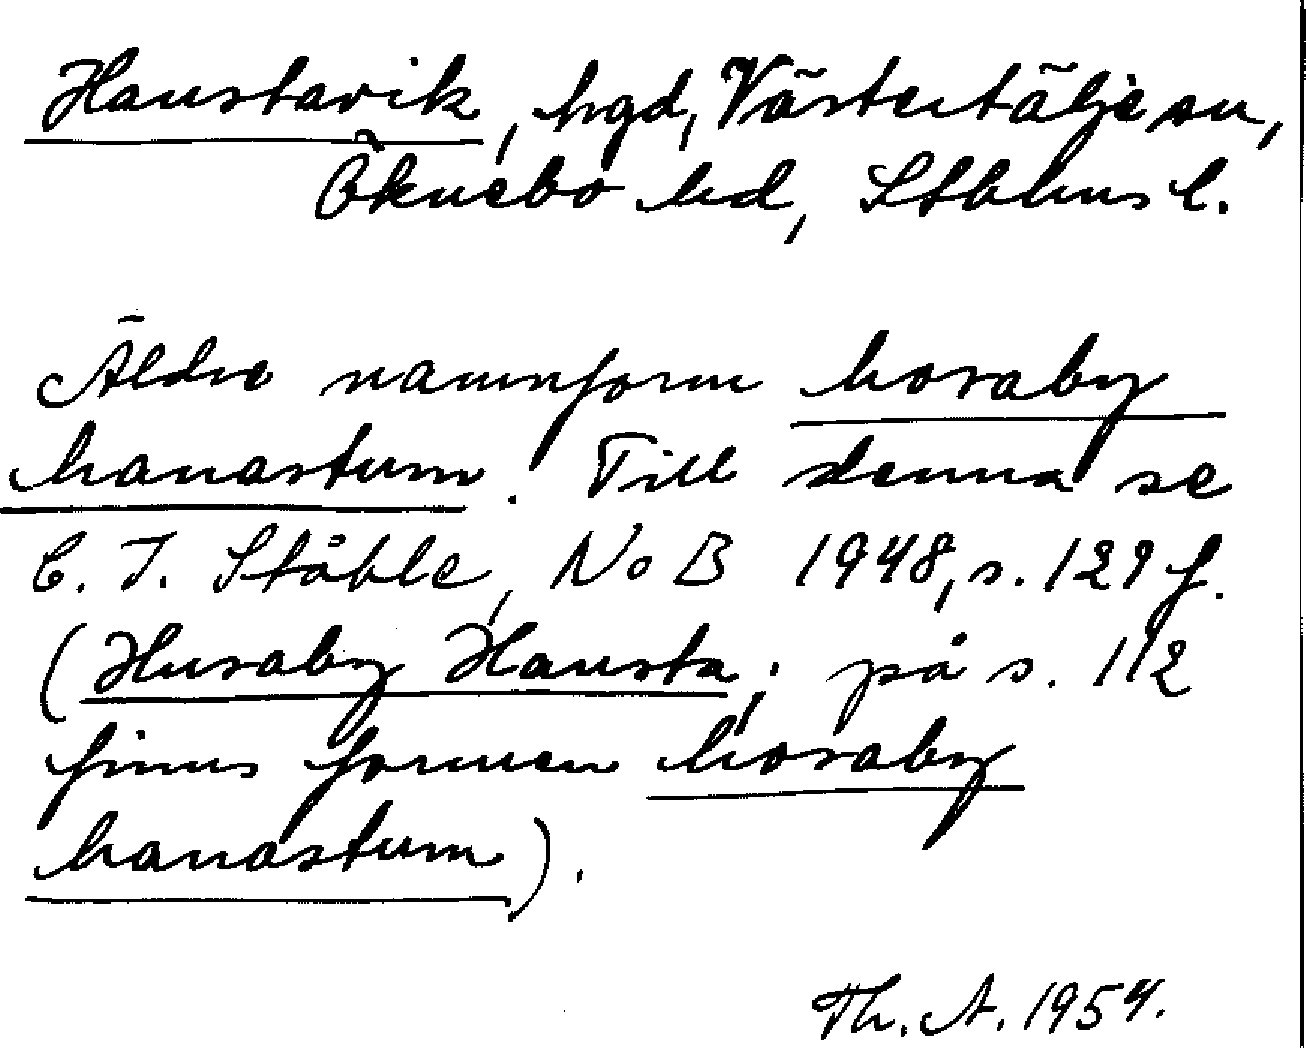 Haustavik, hgd, Västertälje sn,
Öknebo hd, Sthlms l.
Äldre namnform horaby
hanastum. Till denna se
C. I. Ståhle, NoB 1948, s. 129 f.
(Husaby Hansta; på s. 112
finns formen horaby
hanastum).
Th. A. 1954.